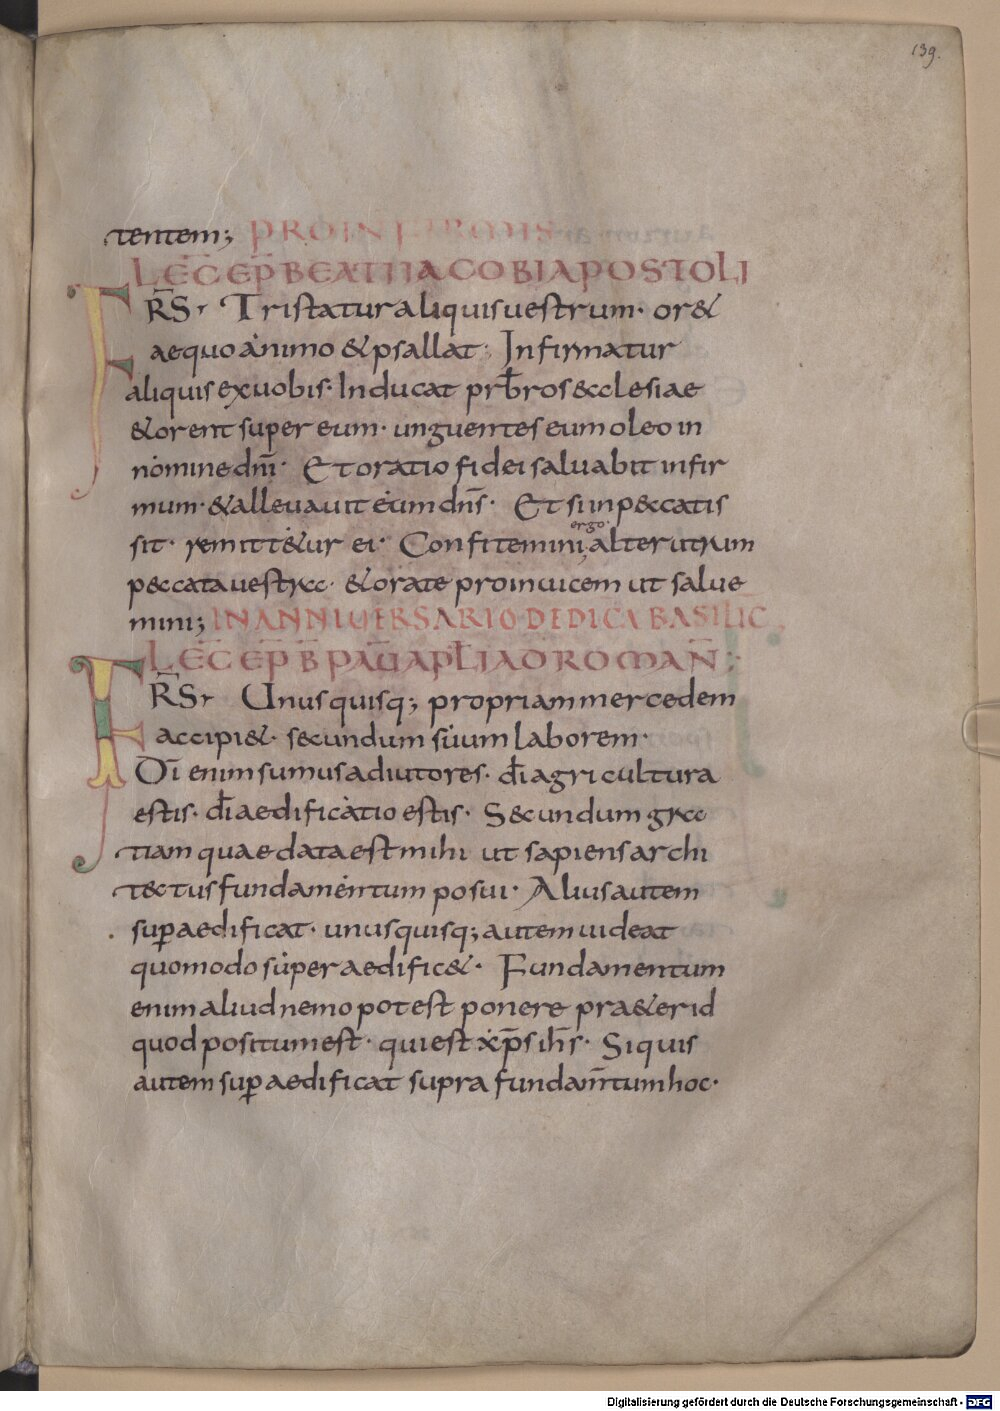 139.
tentem; PRO INFIRMIS
LEC̄ EP̄ BEATI IACOBI APOSTOLI
FR̄S Tristatur aliquis uestrum· or&
aequo animo & psallat· Infirmatur
aliquis ex uobis· Inducat prb̄ros ecclesiae
& orent super eum· unguentes eum oleo in
nomine dn̄i· Et oratio fidei saluabit infir
mum· & alleuauit eum dn̄s· Et si in p&catis
sit· remitt&ur ei· Confitemini ergo· alterutrum
p&cata uestra· & orate pro inuicem ut salue
mini; IN ANNIUERSARIO DEDICA BASILIC
LEC̄ EP̄ B PAU̅ APŁI AD ROMAN̄;
FR̄S Unusquisq; propriam mercedem
accipi&· secundum suum laborem·
Dī enim sumus adiutores· dī agricultura
estis· dī aedificatio estis· Secundum gra
tiam quae data est mihi ut sapiens archi
tectus fundamentum posui· Alius autem
sup̱aedificat· unusquisq; autem uideat
quomodo superaedific&· Fundamentum
enim aliud nemo potest ponere pra&er id
quod positum est· qui est xp̄s ih̄s· Si quis
autem sup̱aedificat supra fundam̄tum hoc·
Digitalisierung gefördert durch die Deutsche Forschungsgemeinschaft - DFG